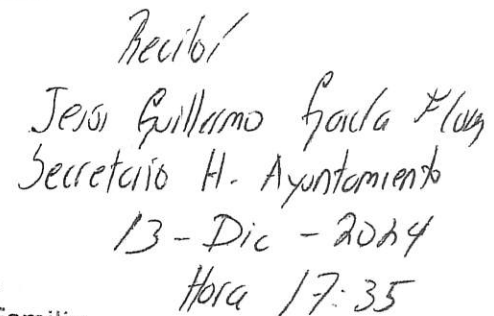 Recibí
Jesús Guillermo García Flores
Secretario H. Ayuntamiento
13 - Dic - 2024
Hora 17:35
Familia